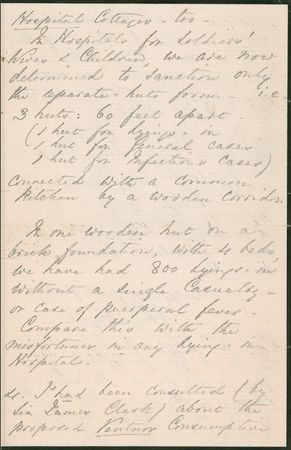 Hospital Cottages - too -
In Hospitals for Soldiers'
Wives & Children, we are now
determined to sanction only
the separate-huts form - i.e
3 huts: 60 feet apart -
(1 hut for Lyings-in
1 hut for General cases
1 hut for Infectious Cases)
connected with a common
Kitchen by a wooden Corridor
In one wooden hut on a
brick foundation, with 4 beds,
we have had 300 Lyings-in
without a single Casualty -
or case of puerperal fever.
Compare this with the
misfortunes in any Lying-in
Hospital.
I had been consulted (by
Sir James Clark) about the
proposed Ventnor Consumptive